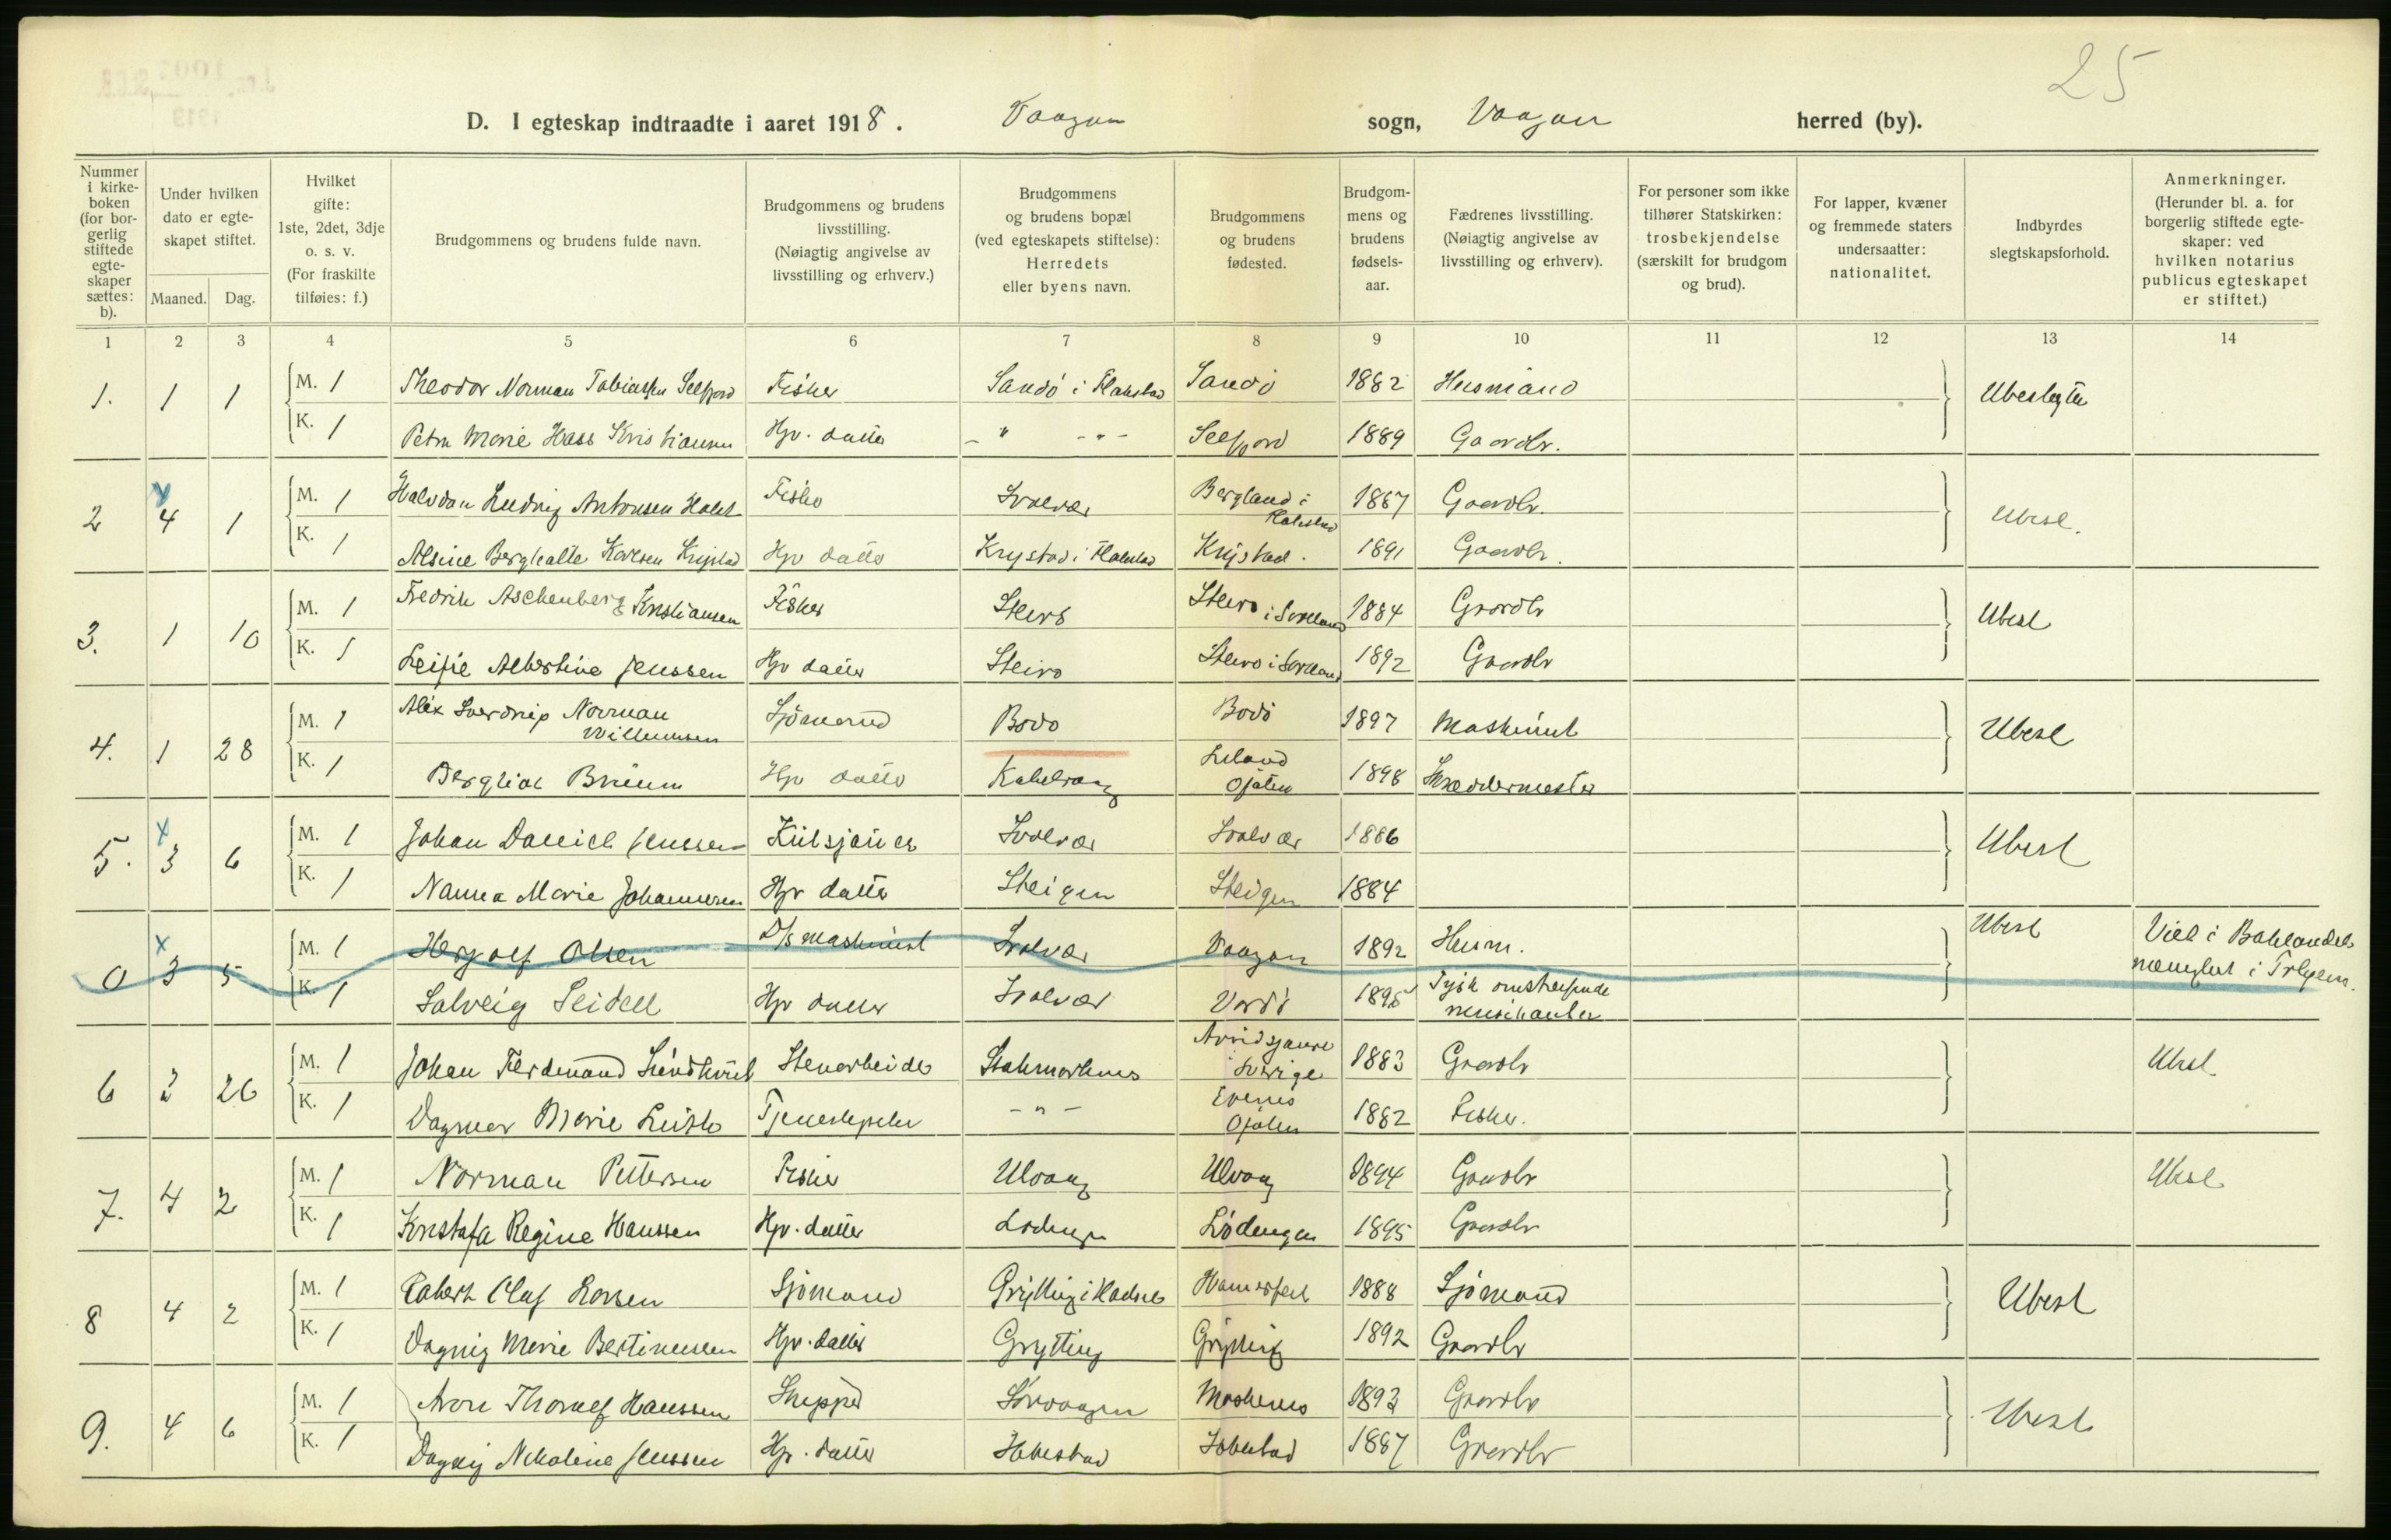 25
D. I egteskap indtraadte i aaret 1918. Vaagan sogn, Vaagan herred (by).
Nummer i kirkeboken (for borgerlig stiftede egteskaper sættes: b).
Under hvilken dato er egteskapet stiftet.
Maaned. Dag.
Hvilket gifte: 1ste, 2det, 3dje o. s. v. (For fraskilte tilføies: f.)
Brudgommens og brudens fulde navn.
Brudgommens og brudens livsstilling. (Nøiagtig angivelse av livsstilling og erhverv.)
Brudgommens og brudens bopæl (ved egteskapets stiftelse): Herredets eller byens navn.
Brudgommens og brudens fødested.
Brudgommens og brudens fødselsaar.
Fædrenes livsstilling. (Nøiagtig angivelse av livsstilling og erhverv).
For personer som ikke tilhører Statskirken: trosbekjendelse (særskilt for brudgom og brud).
For lapper, kvæner og fremmede staters undersaatter: nationalitet.
Indbyrdes slegtskapsforhold.
Anmerkninger. (Herunder bl. a. for borgerlig stiftede egteskaper: ved hvilken notarius publicus egteskapet er stiftet.)
1 2 3 4 5 6 7 8 9 10 11 12 13 14
1. 1 1 M. 1 Theodor Norman Tobiassen Selfjord Fisker Sandö i Flakstad Sandö 1882 Husmand Ubeslegtet
K. 1 Petra Marie Hass Kristiansen Hjv. datter - " - - " - Selfjord 1889 Gaardbr.
2 4 1 M. 1 Halvdan Ludvig Antonsen Holst Fisker Svolvær Bergland i Flakstad 1887 Gaardbr. Ubesl.
K. 1 Alsine Berghalle Karlsen Krystad Hjv datter Krystad i Flakstad Krystad. 1891 Gaardbr.
3. 1 10 M. 1 Fredrik Aschenberg Kristiansen Fisker Steiro Steiro i Sørland 1884 Gaardbr Ubesl
K. 1 Albertine Jenssen Hjv datter Steiro Steiro i Sørland 1892 Gaardbr
4. 1 28 M. 1 Alex Sverdrup Norman Willumsen Sjömand Bodö Bodö 1897 Maskinist Ubesl
K. 1 Bergliot Bruun Hjv datter Kabelvaag Leland Ofoten 1898 Skræddermester
5. 3 6 M. 1 Johan Daniel Jenssen Kulsjauer Svolvær Svolvær 1886 Ubesl
K. 1 Nanna Marie Johannesen Hjv datter Steigen Steigen 1884
0 3 5 M. 1 Herjolf Olsen D/s maskinist Svolvær Vaagan 1892 Husm. Ubesl Viet i
K. 1 Solveig Seidell Hjv datter Svolvær Vardö 1895 Tysk omstreifende musikanter
6 3 26 M. 1 Johan Ferdinand Lindkvist Stenarbeider Stokmarknes Arvidsjaure i Sverige 1883 Gaardbr Ubesl.
K. 1 Dagmar Marie Tjenestepike - " - Evenes Ofoten 1882 Fisker.
7. 4 2 M. 1 Norman Pettersen Fisker Ulvaag Ulvaag 1894 Gaardbr Ubesl
K. 1 Kristofa Regine Hanssen Hjv. datter Lödingen Lödingen 1895 Gaardbr
8 4 2 M. 1 Robert Olaf Larsen Sjömand Grytting i Hadsel Hammerfest 1888 Sjömand Ubesl
K. 1 Dagny Marie Bertinussen Hjv. datter Grytting Grytting 1892 Gaardbr
9. 4 6 M. 1 Aron Thoralf Hanssen Skipper Sörvaagen Moskenes 1893 Gaardbr Ubesl
K. 1 Dagny Nikoline Jenssen Hjv. datter 1887 Gaardbr